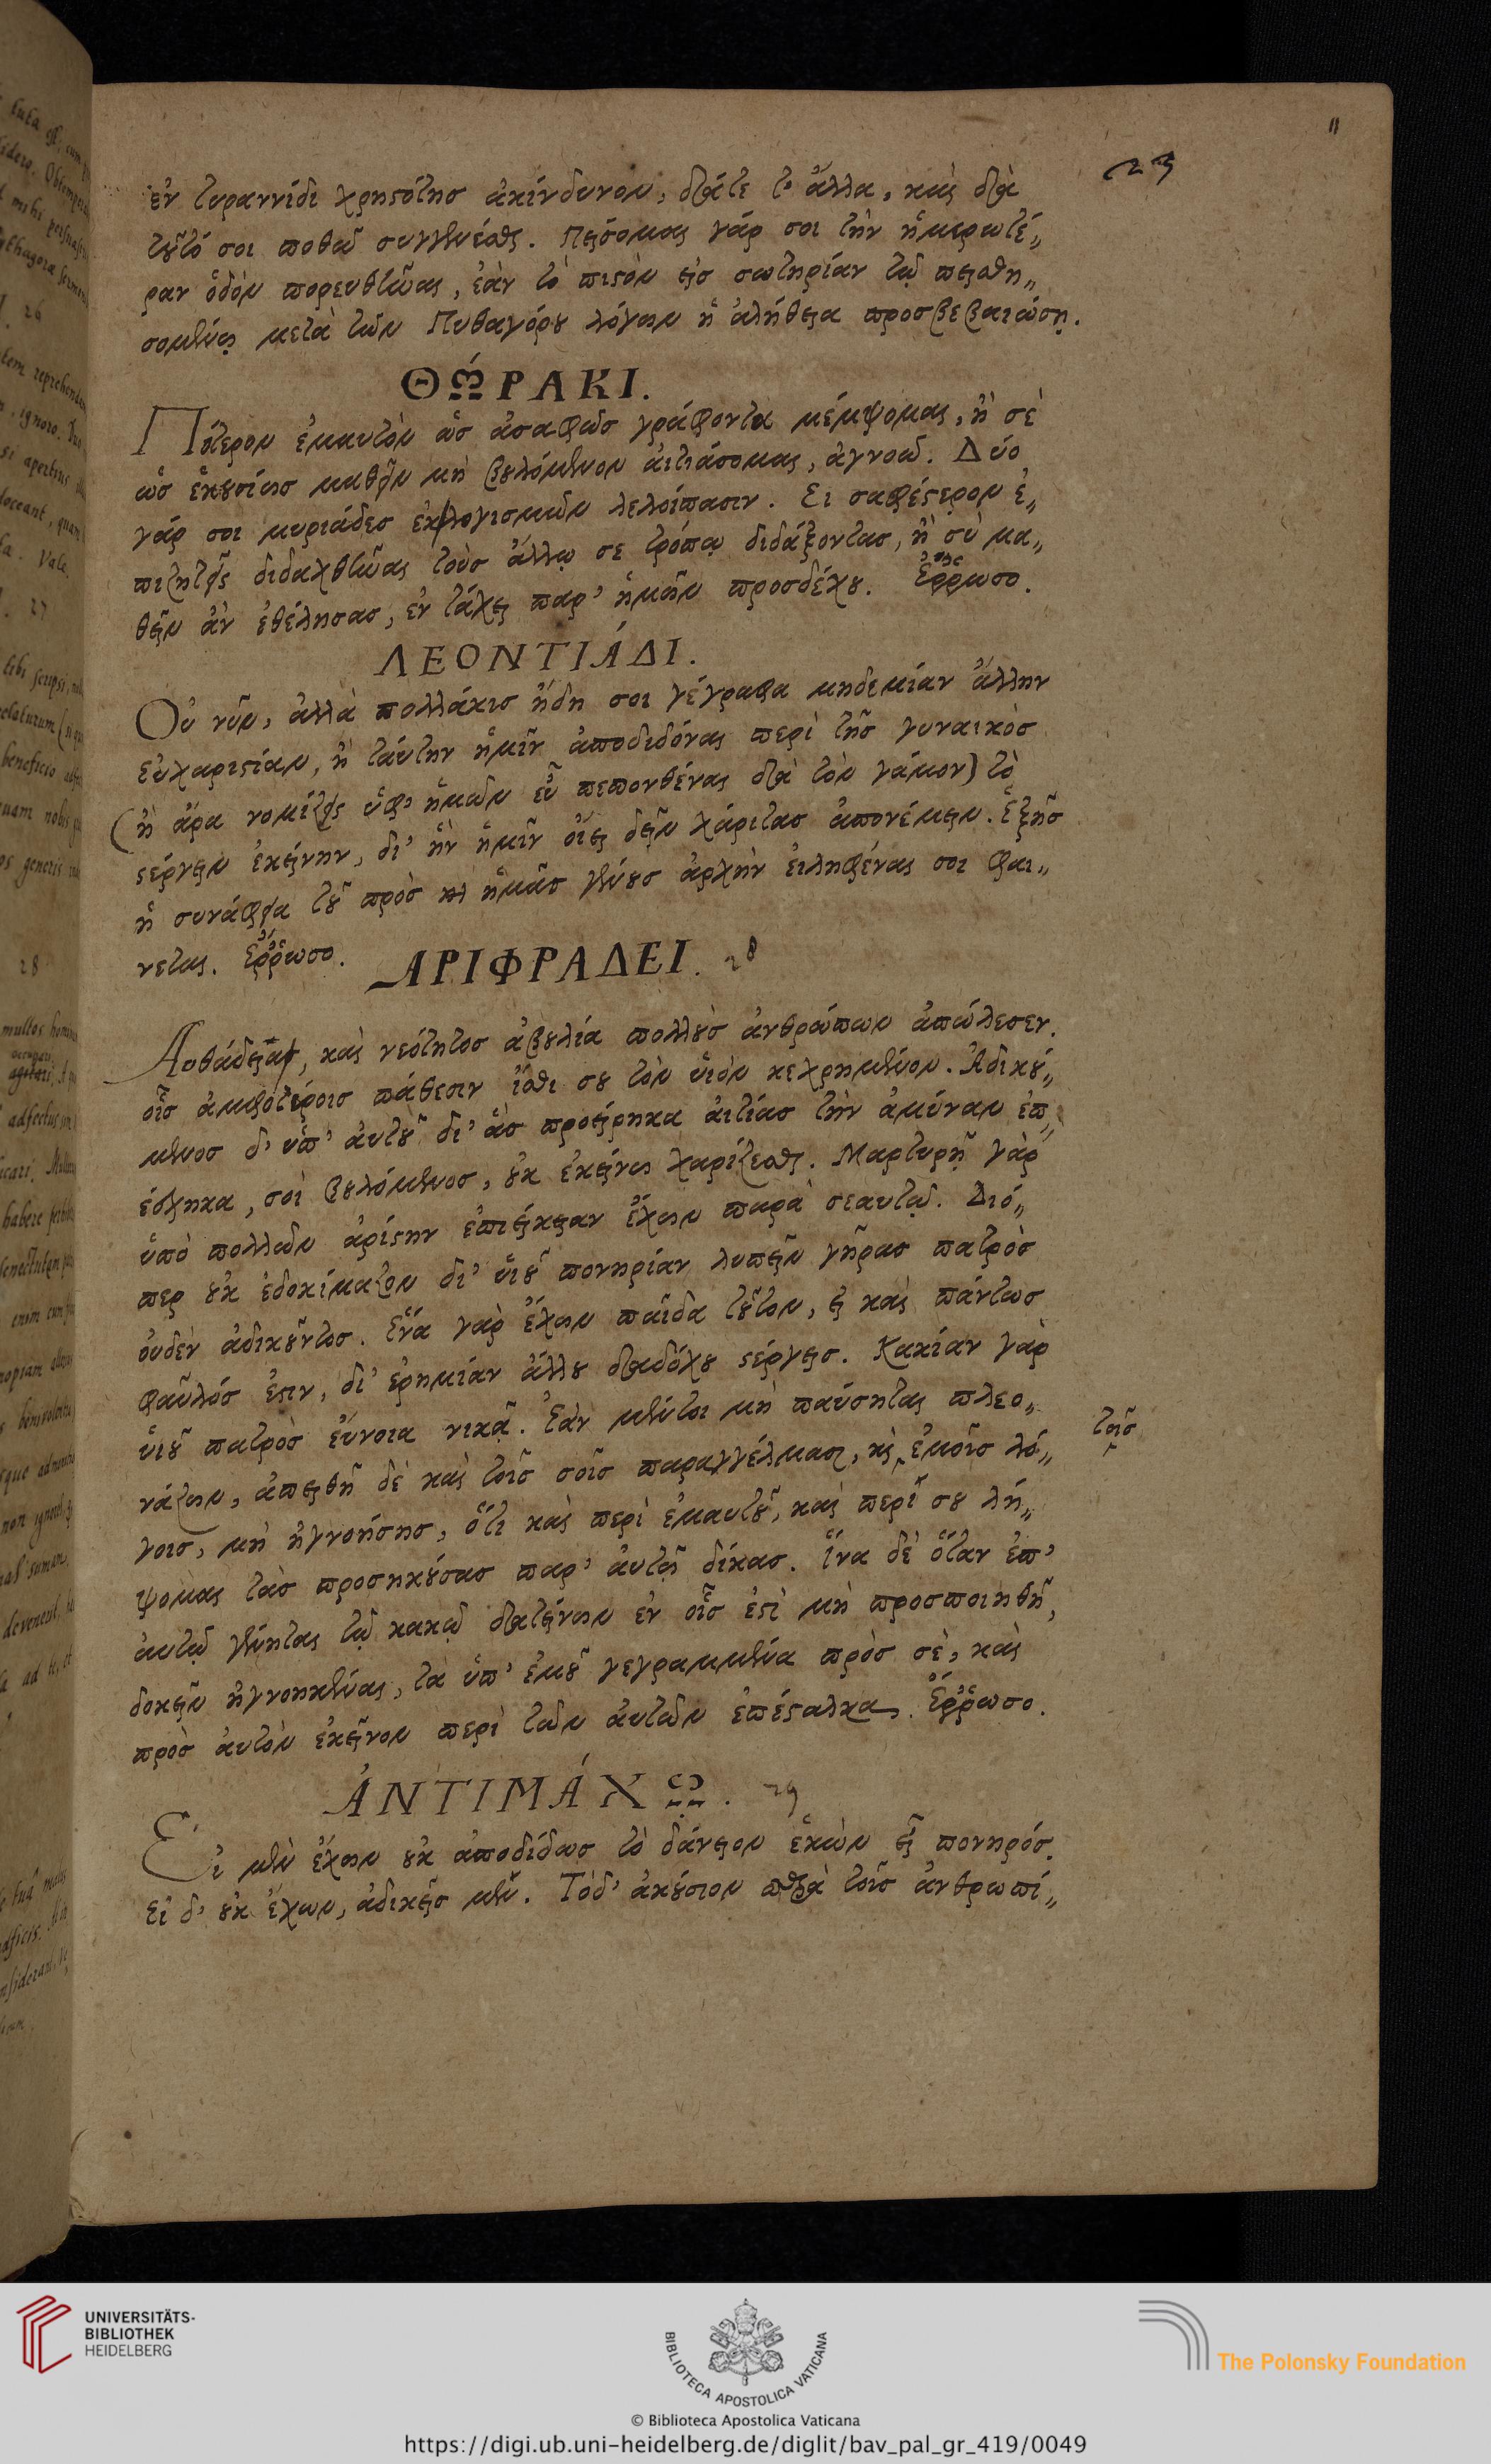 11
23
ἐν τυραννίδι χρηστότης ἀκίνδυνον, διάτε τ' ἄλλα, καὶ διὰ
τοῦτό σοι ποθῶ συγγενέσθαι. Πείσομαι γάρ σοι τὴν ἡμερωτέ„
ραν ὁδὸν πορευθῆναι, ἐὰν τὸ πιστὸν εἰς σωτηρίαν τῷ πεισθη„
σομένῳ μετὰ τῶν Πυθαγόρου λόγων ἡ ἀλήθεια προσβεβαιώσῃ.
ΘΏΡΑΚΙ.
Πότερον ἐμαυτὸν ὡς ἀσαφῶς γράφοντα μέμψομαι, ἢ σὲ
ὡς ἑκουσίως μαθεῖν μὴ βουλόμενον αἰτιάσομαι, ἀγνοῶ. Δύο
γάρ σοι μυριάδες ἐκλογισμῶν λελοίπασιν. Εἰ σαφέστερον ἐ„
πιζητεῖς διδαχθῆναι τοὺς ἄλλῳ σε τρόπῳ διδάξοντας, ἢ σὺ μα„
θεῖν ἂν ἐθέλησας, ἐν τάχει παρ' ἡμῶν προσδέχου. Ἔρρωσο.
ΛΕΟΝΤΙΆΔΙ.
Οὐ νῦν, ἀλλὰ πολλάκις ἤδη σοι γέγραφα μηδεμίαν ἄλλην
εὐχαριστίαν, ἢ ταύτην ἡμῖν ἀποδιδόναι περὶ τῆς γυναικὸς
(ἢ ἄρα νομίζεις ὑφ' ἡμῶν εὖ πεπονθέναι διὰ τὸν γάμον) τὸ
στέργειν ἐκείνην, δι' ἣν ἡμῖν οἴει δεῖν χάριτας ἀπονέμειν. Ἑξῆς
ἡ συνάφεια τοῦ πρὸς ἡμᾶς γένους ἀρχὴν εἰληφέναι σοι φαί„
νεται. Ἔρρωσο.
ΑΡΙΦΡΑΔΕΙ. 28
Αυθάδεια, καὶ νεότητος ἀβουλία πολλοὺς ἀνθρώπων ἀπώλεσεν.
οἷς ἀμφοτέροις πάθεσιν ἴσθι σου τὸν υἱὸν κεχρημένον. Ἀδικού„
μενος δ' ὑπ' αὐτοῦ δι' ἃς προείρηκα αἰτίας τὴν ἀμύναν ἐπ„
έσχηκα, σοὶ βουλόμενος, οὐκ ἐκείνῳ χαρίζεσθαι. Μαρτυρῇ γὰρ
ὑπὸ πολλῶν ἀρίστην ἐπιείκειαν ἔχων παρὰ σεαυτῷ. Διό„
περ οὐκ ἐδοκίμαζον δι' υἱοῦ πονηρίαν λυπεῖν γῆρας πατρὸς
οὐδὲν ἀδικοῦντος. Ἕνα γὰρ ἔχων παῖδα τοῦτον, εἰ καὶ πάντως
φαῦλός ἐστιν, δι' ἐρημίαν ἄλλου διαδόχου στέργεις. Κακίαν γὰρ
υἱοῦ πατρὸς εὔνοια νικᾷ. Ἐὰν μέντοι μὴ παύσηται πλεο„
νάζων, ἀπειθῇ δὲ καὶ τοῖς σοῖς παραγγέλμασι, καὶ ἐμοῖς λό„
τοῖς
γοις, μὴ ἠγνοήσῃς, ὅτι καὶ περὶ ἐμαυτοῦ, καὶ περί σου λή„
ψομαι τὰς προσηκούσας παρ' αὐτῷ δίκας. Ἵνα δὲ ὅταν ἐπ'
αυτῷ γένηται τῷ κακῷ διατείνων ἐν οἷς ἐστὶ μὴ προσποιηθῇ,
δοκεῖν ἠγνοηκέναι, τὰ ὑπ' ἐμοῦ γεγραμμένα πρὸς σὲ, καὶ
πρὸς αὐτὸν ἐκεῖνον περὶ τῶν αὐτῶν ἐπέσταλκα. Ἔρρωσο.
ἈΝΤΙΜΆΧΩ. 29
Εἰ μὲν ἔχων οὐκ ἀποδίδως τὸ δάνειον ἑκὼν εἶ πονηρός.
Εἰ δ' οὐκ ἔχων, ἀδικεῖς μέν. Τόδ' ἀκούσιον παρὰ τοῖς ἀνθρωπί„
UNIVERSITÄTS-
BIBLIOTHEK
HEIDELBERG
BIBLIOTECA APOSTOLICA VATICANA
The Polonsky Foundation
© Biblioteca Apostolica Vaticana
https://digi.ub.uni-heidelberg.de/diglit/bav_pal_gr_419/0049